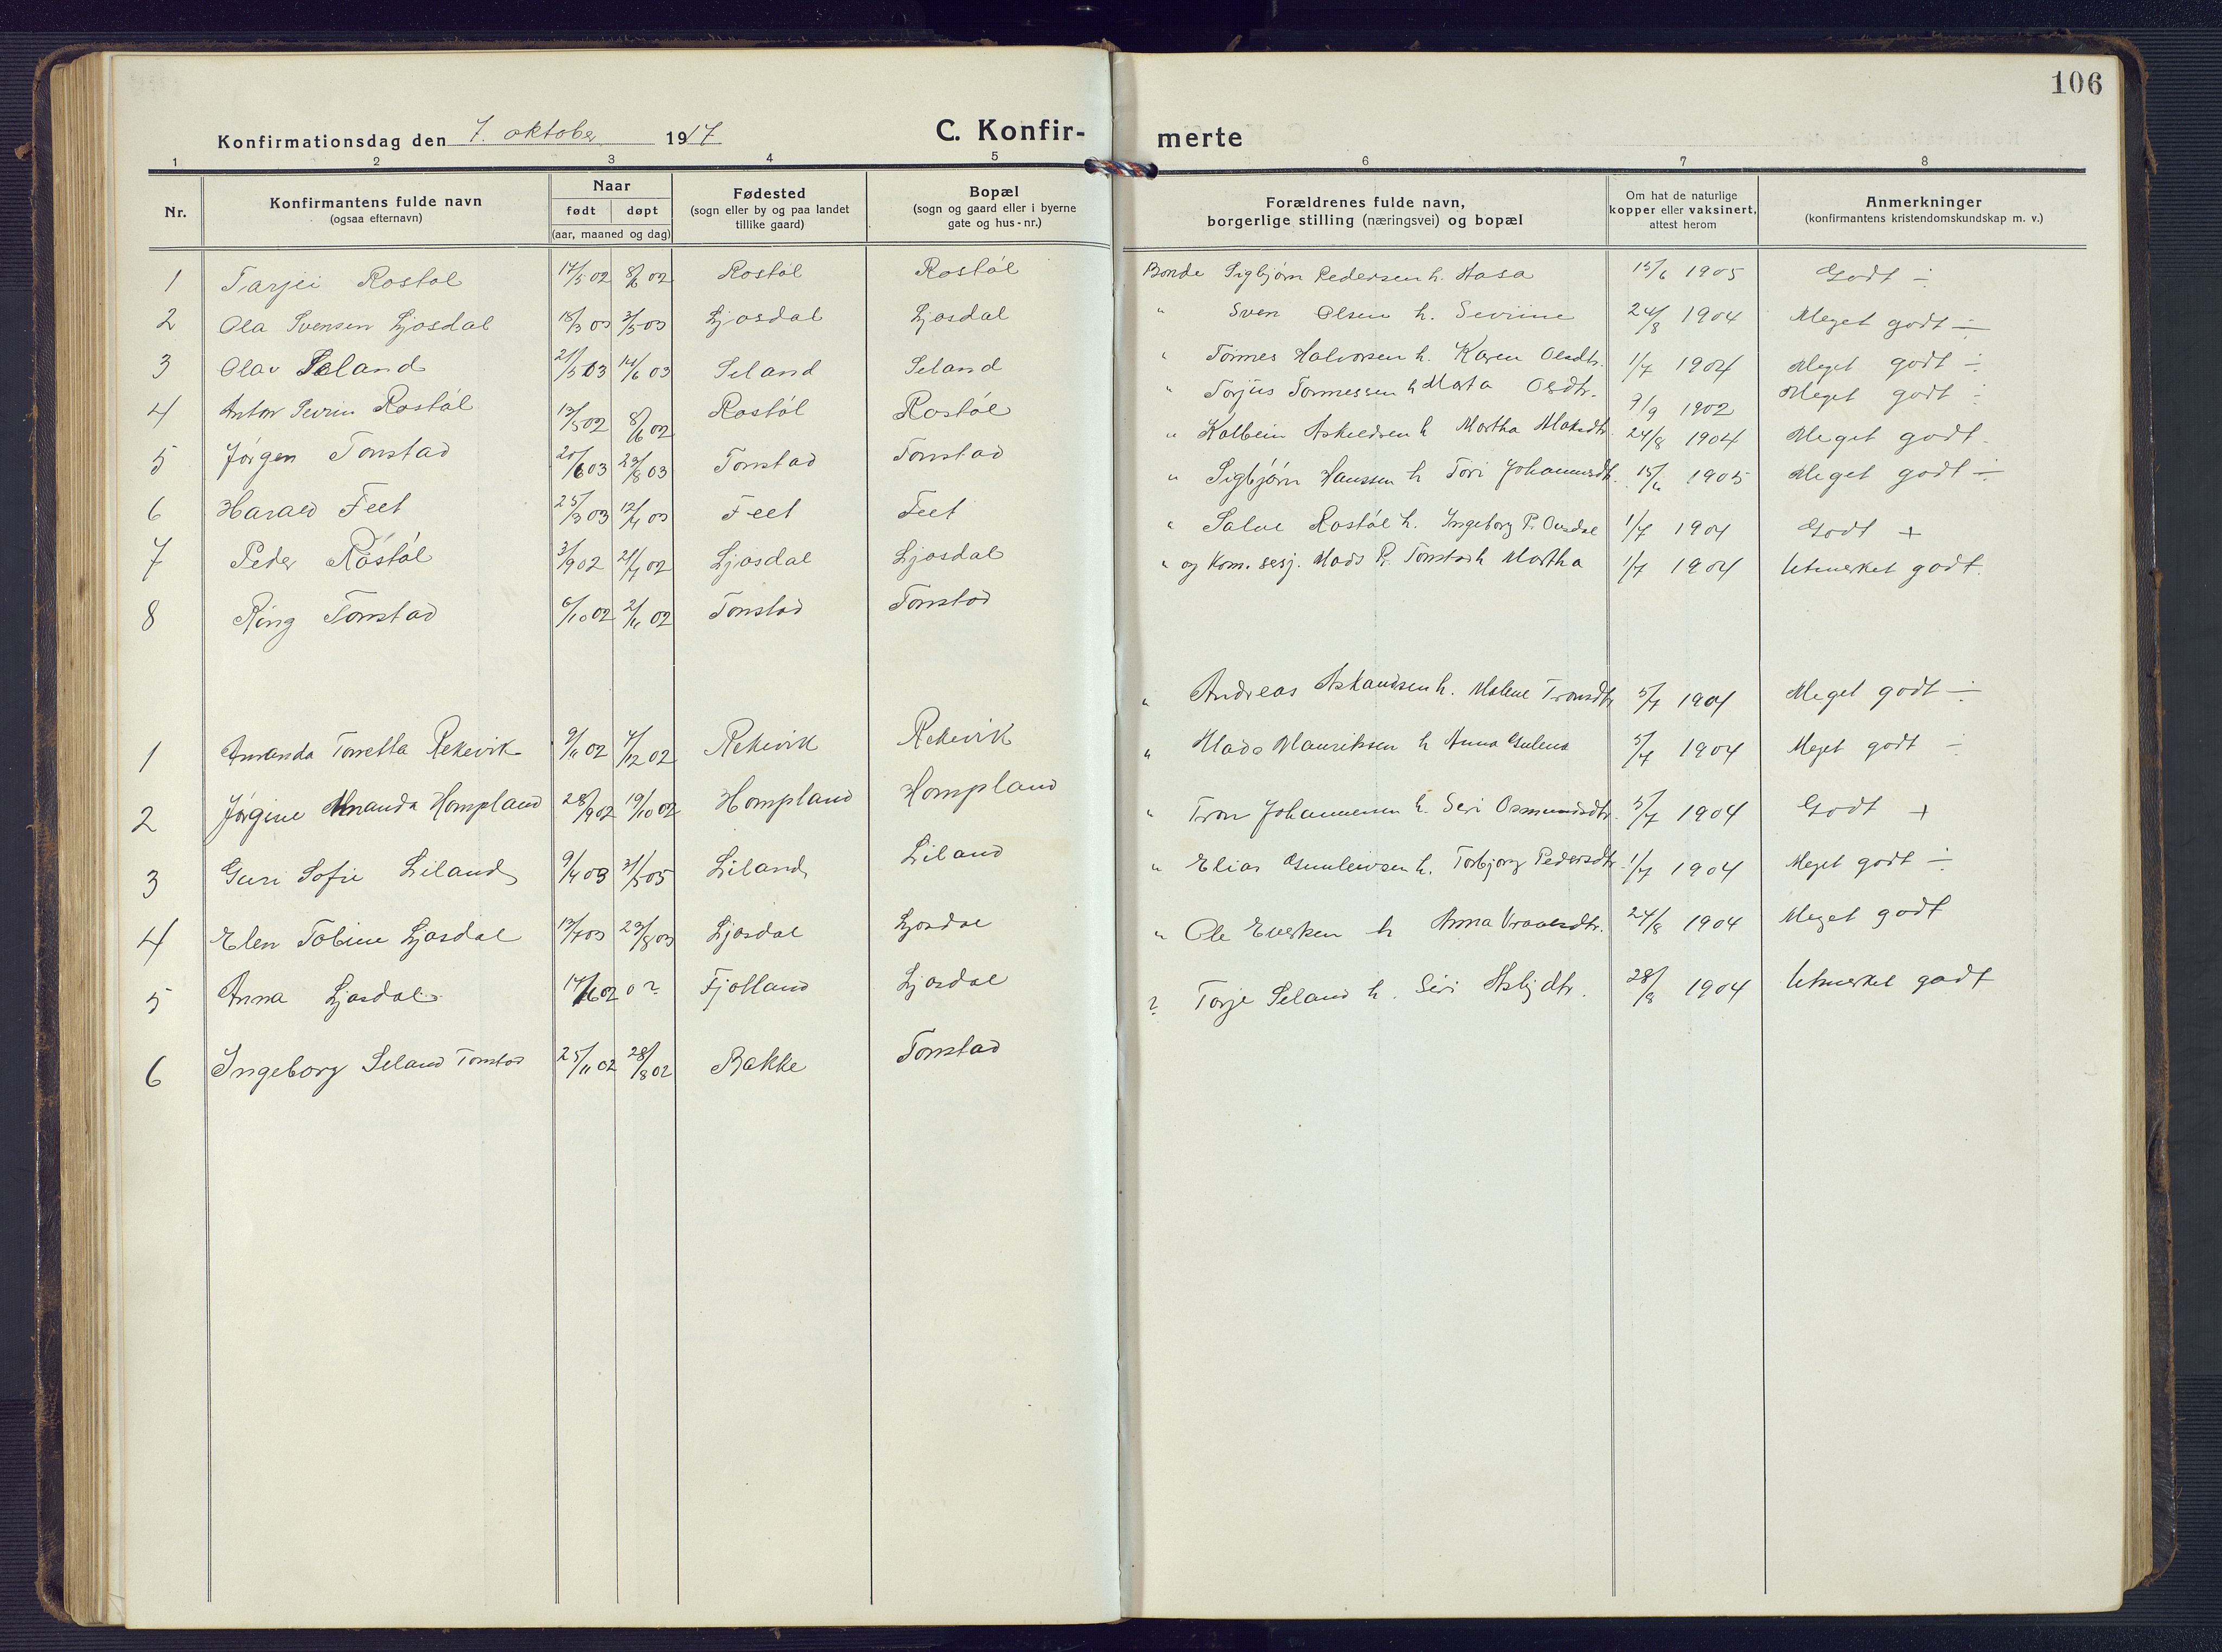 106
Konfirmationsdag den 7. oktober 1917
C. Konfir-
merte
1 2 3 4 5 6 7 8
Nr. | Konfirmantens fulde navn (ogsaa efternavn) | Naar født døpt (aar, maaned og dag) | Fødested (sogn eller by og paa landet tillike gaard) | Bopæl (sogn og gaard eller i byerne gate og hus-nr.) | Forældrenes fulde navn, borgerlige stilling (næringsvei) og bopæl | Om hat de naturlige kopper eller vaksinert, attest herom | Anmerkninger (konfirmantens kristendomskundskap m. v.)
1 Tarjei Rostøl 17/5 02 8/6 02 Rostøl Rostøl Bonde Sigbjørn Pedersen h. Aasa 15/6 1905 Godt ÷
2 Ola Svensen Ljosdal 18/3 03 3/5 03 Ljosdal Ljosdal " Sven Olsen h. Sevrine 24/8 1904 Meget godt ÷
3 Olav Seland 21/5 03 14/6 03 Seland Seland " Tormes Halvorsen h. Karen Olsdtr. 1/7 1904 Meget godt ÷
4 Anton Sevrin Rostøl 13/5 02 8/6 02 Rostøl Rostøl " Torjus Tormessen h Marta Olsdtr. 9/9 1902 Meget godt ÷
5 Jørgen Tonstad 20/6 03 23/8 03 Tonstad Tonstad " Kolbein Askeldsen h Martha 24/8 1904 Meget godt.
6 Harald Feet 25/3 03 12/4 03 Feet Feet " Sigbjørn Hanssen h Tori Johannesdt. 15/6 1905 Meget godt ÷
7 Peder Rostøl 3/9 02 Ljosdal Ljosdal " Salve Rostøl h. Ingeborg P. Ousdal 1/7 1904 Godt +
8 Ring Tonstad 6/10 02 2/11 02 Tonstad Tonstad " og kom. sesj. Mads P. Tonstad h Martha 1/7 1904 Utmerket godt.
1 Amanda Tonetta Rekevik 9/11 02 7/12 02 Rekevik Rekevik " Andreas h. Malene Tronsdtr 5/7 1904 Meget godt ÷
2 Jørgine Amanda Hompland 28/9 02 19/10 02 Hompland Hompland " Mads Mauritssen h Anna 5/7 1904 Meget godt ÷
3 Guri Sofie Liland 9/4 03 Liland Liland " Tron Johannesen h. Seri Osmundsdtr. 5/7 1904 Godt +
4 Elen Tobine Ljosdal 13/7 03 23/8 03 Ljosdal Ljosdal " Elias Gunleivsen h. Torbjorg Pedersdtr. 1/7 1904 Meget godt ÷
5 Anna Ljosdal 02 0 ? Fjotland Ljosdal " Ole h Anna 24/8 1904 Meget godt
6 Ingeborg Seland Tonstad 25/11 02 28/8 02 Bakke Tonstad ? Torje Seland h. Siri Asbjdtr. 28/8 1904 Utmerket godt